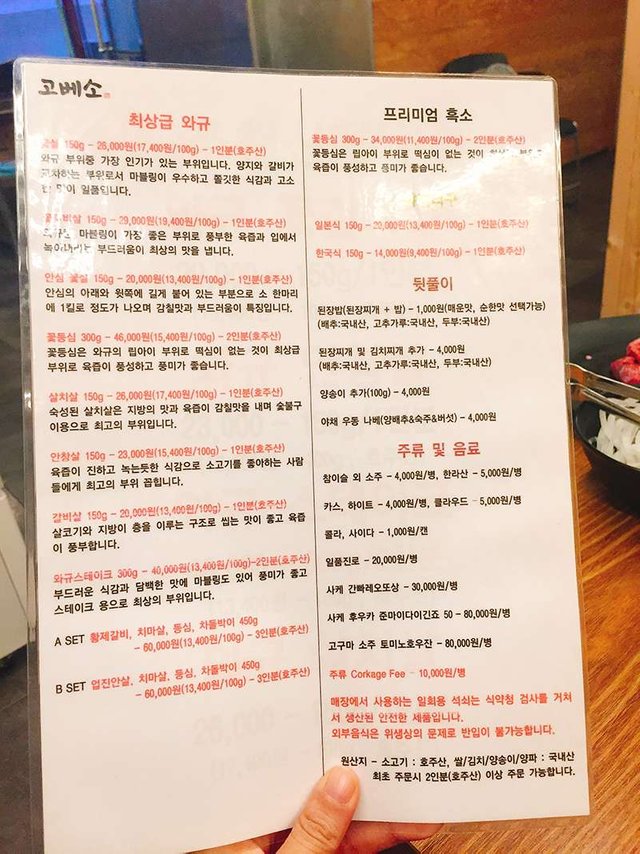 고베소
최상급 와규
150g - 26,000원(17,400원/100g) - 1인분(호주산)
와규 부위중 가장 인기가 있는 부위입니다. 양지와 갈비가
교차하는 부위로서 마블링이 우수하고 쫄깃한 식감과 고소
한 맛이 일품입니다.
150g - 29,000원(19,400원/100g) - 1인분(호주산)
마블링이 가장 좋은 부위로 풍부한 육즙과 입에서
부드러움이 최상의 맛을 냅니다.
안심 꽃살 150g - 20,000원(13,400원/100g) - 1인분(호주산)
안심의 아래와 윗쪽에 길게 붙어 있는 부분으로 소 한마리
에 1킬로 정도가 나오며 감칠맛과 부드러움이 특징입니다.
꽃등심 300g - 46,000원(15,400원/100g) - 2인분(호주산)
꽃등심은 와규의 립아이 부위로 떡심이 없는 것이 최상급
부위로 육즙이 풍성하고 풍미가 좋습니다.
살치살 150g - 26,000원(17,400원/100g) - 1인분(호주산)
숙성된 살치살은 지방의 맛과 육즙이 감칠맛을 내며 숯불구
이용으로 최고의 부위입니다.
안창살 150g - 23,000원(15,400원/100g) - 1인분(호주산)
육즙이 진하고 녹는듯한 식감으로 소고기를 좋아하는 사람
들에게 최고의 부위 꼽힙니다.
갈비살 150g - 20,000원(13,400원/100g) - 1인분(호주산)
살코기와 지방이 층을 이루는 구조로 씹는 맛이 좋고 육즙
이 풍부합니다.
와규스테이크 300g - 40,000원(13,400원/100g)-2인분(호주산)
부드러운 식감과 담백한 맛에 마블링도 있어 풍미가 좋고
스테이크 용으로 최상의 부위입니다.
A SET 황제갈비, 치마살, 등심, 차돌박이 450g
- 60,000원(13,400원/100g) - 3인분(호주산)
B SET 업진안살, 치마살, 등심, 차돌박이 450g
- 60,000원(13,400원/100g) - 3인분(호주산)
프리미엄 흑소
꽃등심 300g - 34,000원(11,400원/100g) - 2인분(호주산)
꽃등심은 립아이 부위로 떡심이 없는 것이
육즙이 풍성하고 풍미가 좋습니다.
일본식 150g - 20,000원(13,400원/100g) - 1인분(호주산)
한국식 150g - 14,000원(9,400원/100g) - 1인분(호주산)
뒷풀이
된장밥(된장찌개 + 밥) - 1,000원(매운맛, 순한맛 선택가능)
(배추:국내산, 고추가루:국내산, 두부:국내산)
된장찌개 및 김치찌개 추가 - 4,000원
(배추:국내산, 고추가루:국내산, 두부:국내산)
양송이 추가(100g) - 4,000원
야채 우동 나베(양배추&숙주&버섯) - 4,000원
주류 및 음료
참이슬 외 소주 - 4,000원/병, 한라산 - 5,000원/병
카스, 하이트 - 4,000원/병, 클라우드 - 5,000원/병
콜라, 사이다 - 1,000원/캔
일품진로 - 20,000원/병
사케 간빠레오또상 - 30,000원/병
사케 후우카 준마이다이긴죠 50 - 80,000원/병
고구마 소주 토미노호우잔 - 80,000원/병
주류 Corkage Fee - 10,000원/병
매장에서 사용하는 일회용 석쇠는 식약청 검사를 거쳐
서 생산된 안전한 제품입니다.
외부음식은 위생상의 문제로 반입이 불가능합니다.
원산지 - 소고기 : 호주산, 쌀/김치/양송이/양파 : 국내산
최초 주문시 2인분(호주산) 이상 주문 가능합니다.